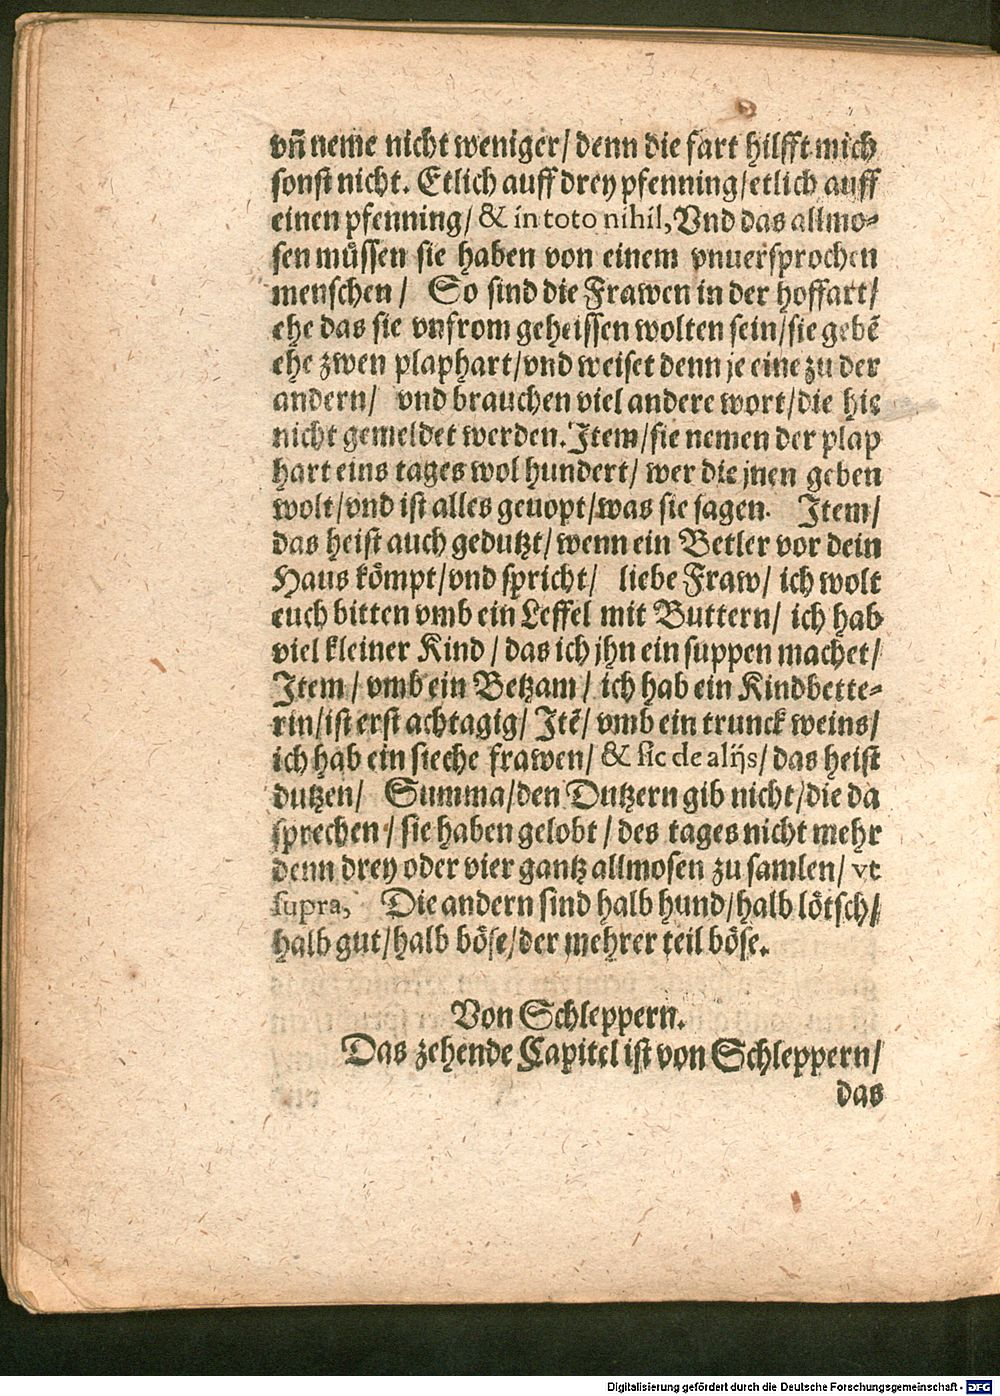 vñ neme nicht weniger/ denn die fart hilfft mich
sonst nicht. Etlich auff drey pfenning/etlich auff
einen pfenning/ & in toto nihil, Vnd das allmo-
sen müssen sie haben von einem vnuersprochen
menschen/ So sind die Frawen in der hoffart/
ehe das sie vnfrom geheissen wolten sein/sie gebē
ehe zwen plaphart/vnd weiset denn je eine zu der
andern/ vnd brauchen viel andere wort/die hie
nicht gemeldet werden. Item/sie nemen der plap
hart eins tages wol hundert/ wer die jnen geben
wolt/vnd ist alles geuopt/was sie sagen. Item/
das heist auch gedutzt/ wenn ein Betler vor dein
Haus kömpt/vnd spricht/ liebe Fraw/ ich wolt
euch bitten vmb ein Leffel mit Buttern/ ich hab
viel kleiner Kind/ das ich jhn ein suppen machet/
Item/ vmb ein Betzam/ ich hab ein Kindbette-
rin/ist erst achtagig/ Itē/ vmb ein trunck weins/
ich hab ein sieche frawen/ & sic de alijs/ das heist
dutzen/ Summa/den Dutzern gib nicht/die da
sprechen/ sie haben gelobt/ des tages nicht mehr
denn drey oder vier gantz allmosen zu samlen/ vt
supra, Die andern sind halb hund/halb lötsch/
halb gut/halb böse/der mehrer teil böse.
Von Schleppern.
Das zehende Capitel ist von Schleppern/
das
Digitalisierung gefördert durch die Deutsche Forschungsgemeinschaft - DFG